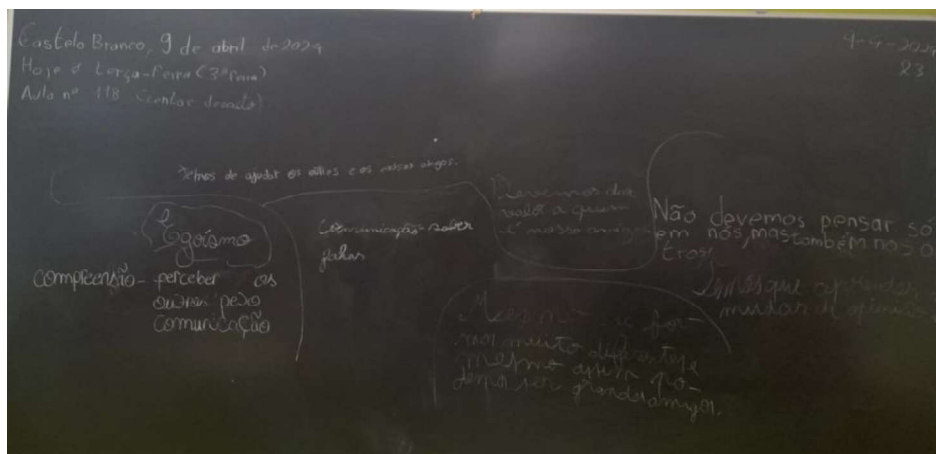 Castelo Branco, 9 de abril de 2024
Hoje é terça-feira (3ª feira)
Aula nº 118 (cento e dezoito)
9-4-2024
23
Temos de ajudar os outros e os nossos amigos.
Egoísmo
compreensão- perceber os
outros pela
comunicação
Comunicação- saber
falar
Devemos dar
valor a quem
é nosso amigo
Não devemos pensar só
em nós, mas também nos o
tros!
mudar de opinião
muito diferentes e
mesmo assim po-
demos ser grandes amigos.